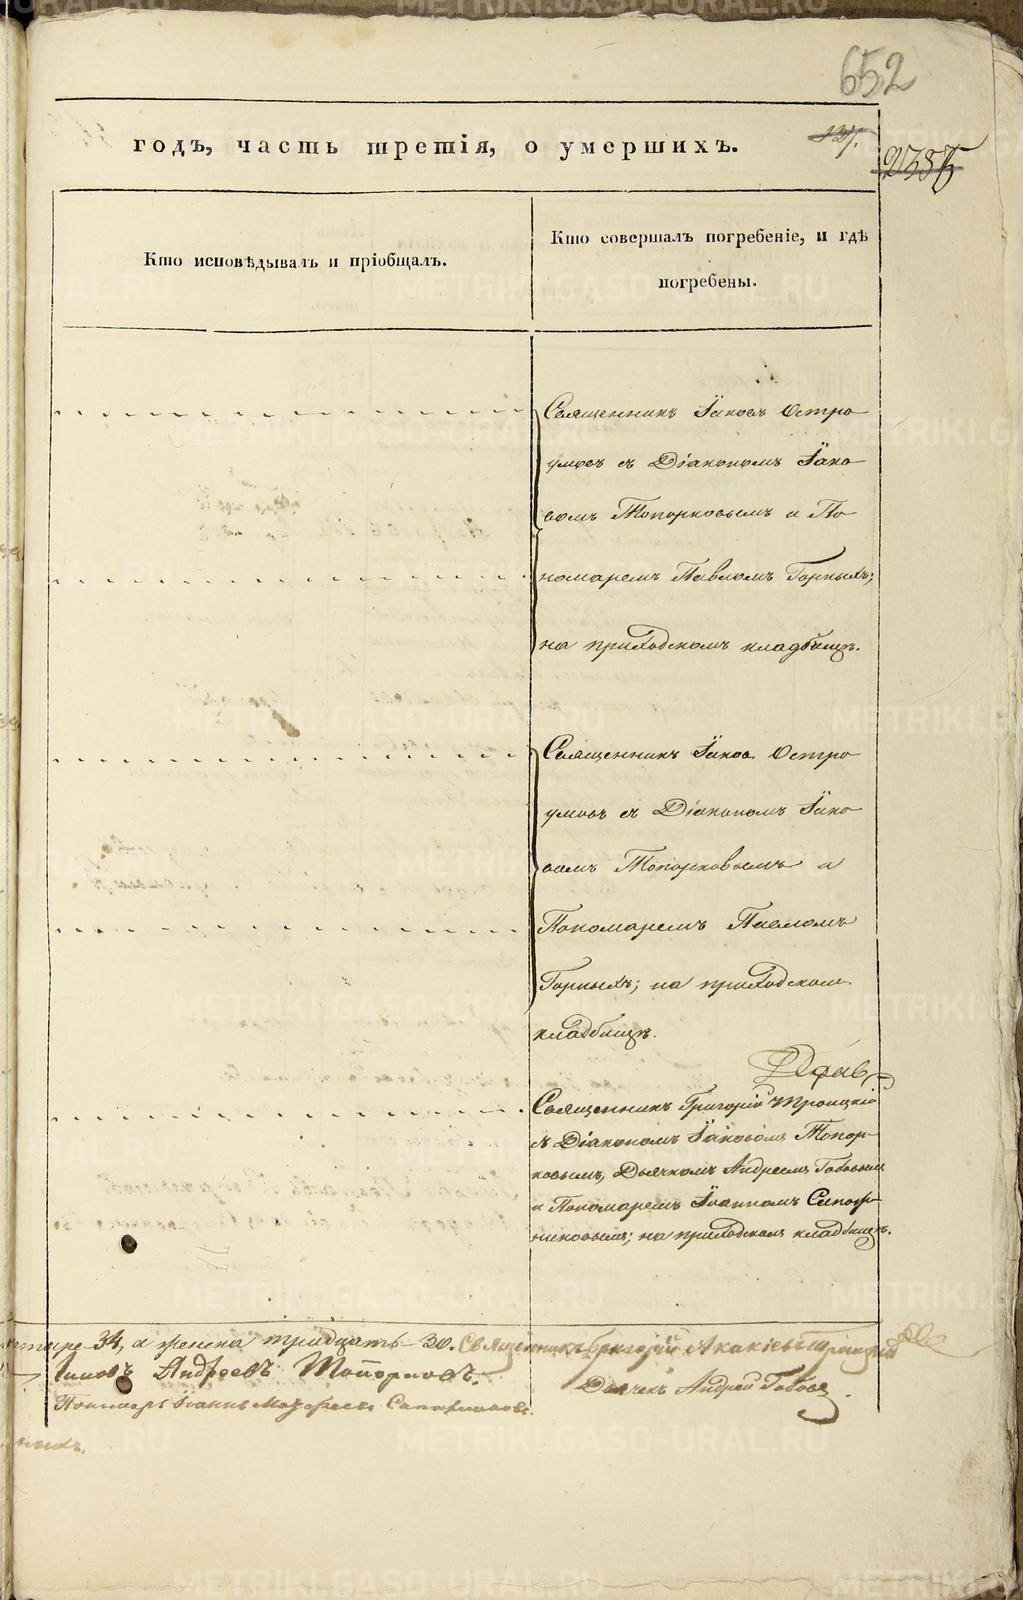 652
годъ, часть третія, о умершихъ.
137.
Кто исповѣдывалъ и пріобщалъ.
Кто совершалъ погребеніе, и гдѣ
погребены.
Священникъ Іаковъ Остро
умовъ съ Діакономъ Іако
вомъ Топорковымъ и По
номаремъ Павломъ Горныхъ;
на приходскомъ кладбищѣ.
Священникъ Іаковъ Остро
умовъ съ Діакономъ Іако
вомъ Топорковымъ и
Пономаремъ Павломъ
Горныхъ; на приходскомъ
кладбищѣ.
Священникъ Григорій Троицкій
съ Діакономъ Іаковомъ Топор-
ковымъ, Дьячкомъ Андреемъ Бабовым
и Пономаремъ Іоанномъ Сапож-
никовымъ; на приходскомъ кладбищѣ.
34, а женска тридцать 30. Священникъ Григорій Акакіевъ Троицкій
Іаковъ Андреевъ Топорковъ.
Дьячекъ Андрей
Пономарь Іоаннъ Сапожниковъ.
METRIKI.GASO-URAL.RU